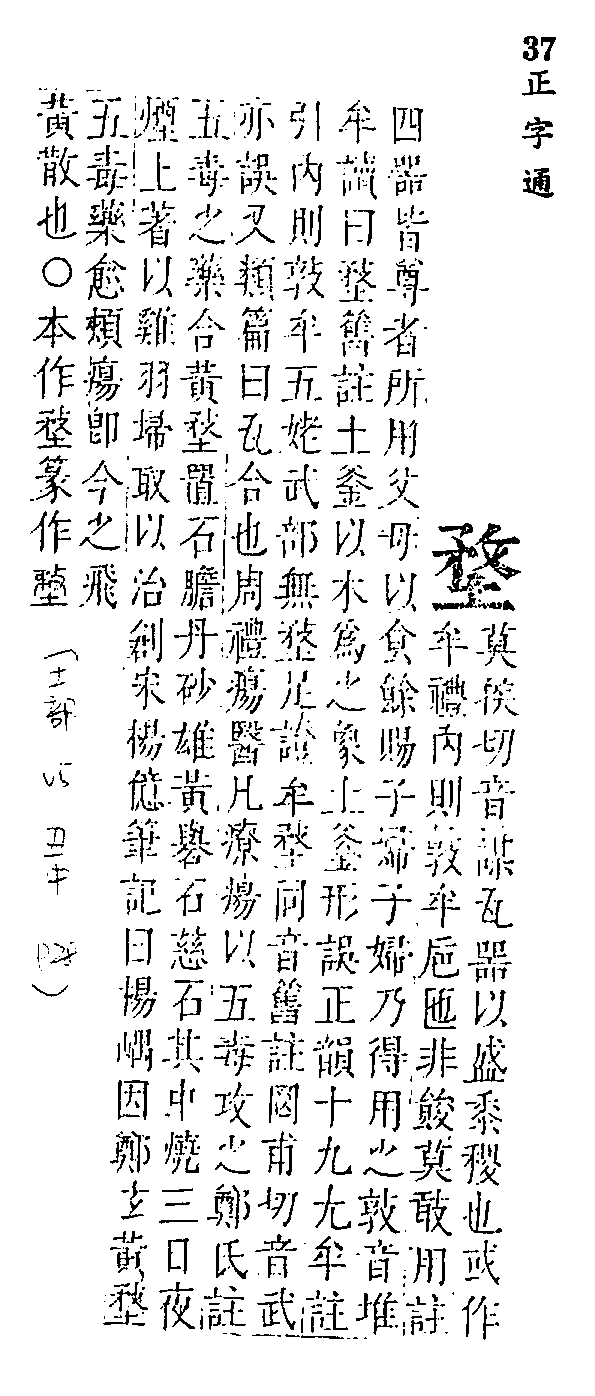 37 正字通
堥
莫侯切音謀瓦器以盛黍稷也或作
牟禮內則敦牟巵匜非餕莫敢用註
四器皆尊者所用父母以食餘賜子婦子婦乃得用之敦音堆
牟讀曰堥舊註土釜以木爲之象土釜形誤正韻十九尤牟註
引內則敦牟五姥武部無堥足證牟堥同音舊註罔甫切音武
亦誤又類篇曰瓦合也周禮瘍醫凡療瘍以五毒攻之鄭氏註
五毒之藥合黃堥置石膽丹砂雄黃礜石慈石其中燒三日夜
煙上著以雞羽埽取以治創宋楊億筆記曰楊嵎因鄭玄黃堥
五毒藥愈頰瘍卽今之飛
黃散也○本作堥篆作
(土部 丑中 p28)